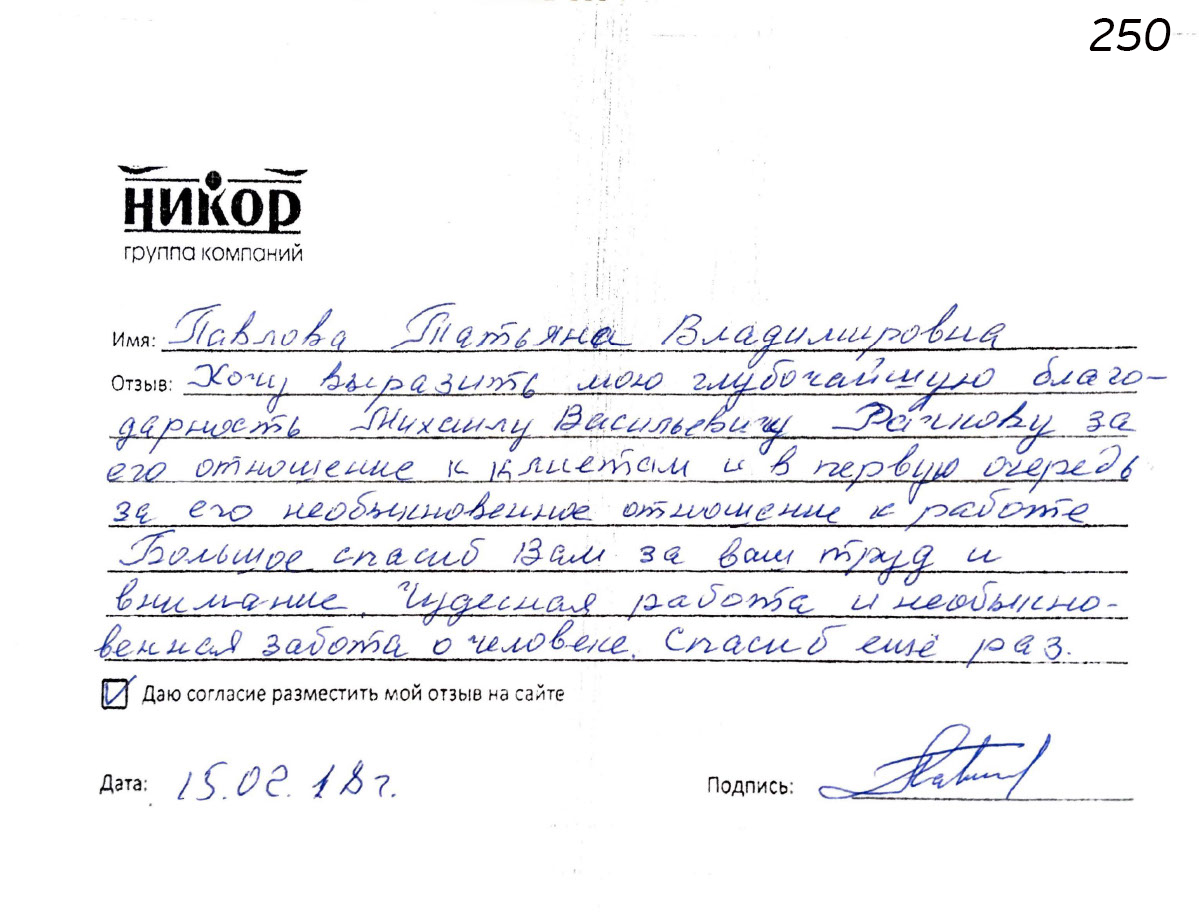 250
НИКОР
группа компаний
Имя: Павлова Татьяна Владимировна
Отзыв: Хочу выразить мою глубочайшую благо-
дарность Михаилу Васильевичу за
его отношение к клиетам и в первую очередь
за его необыкновенное отношение к работе
Большое спасиб Вам за ваш труд и
внимание. Чудесная работа и необыкно-
венная забота о человеке. Спасиб ещё раз.
Даю согласие разместить мой отзыв на сайте
Дата: 15.02.18г.
Подпись: